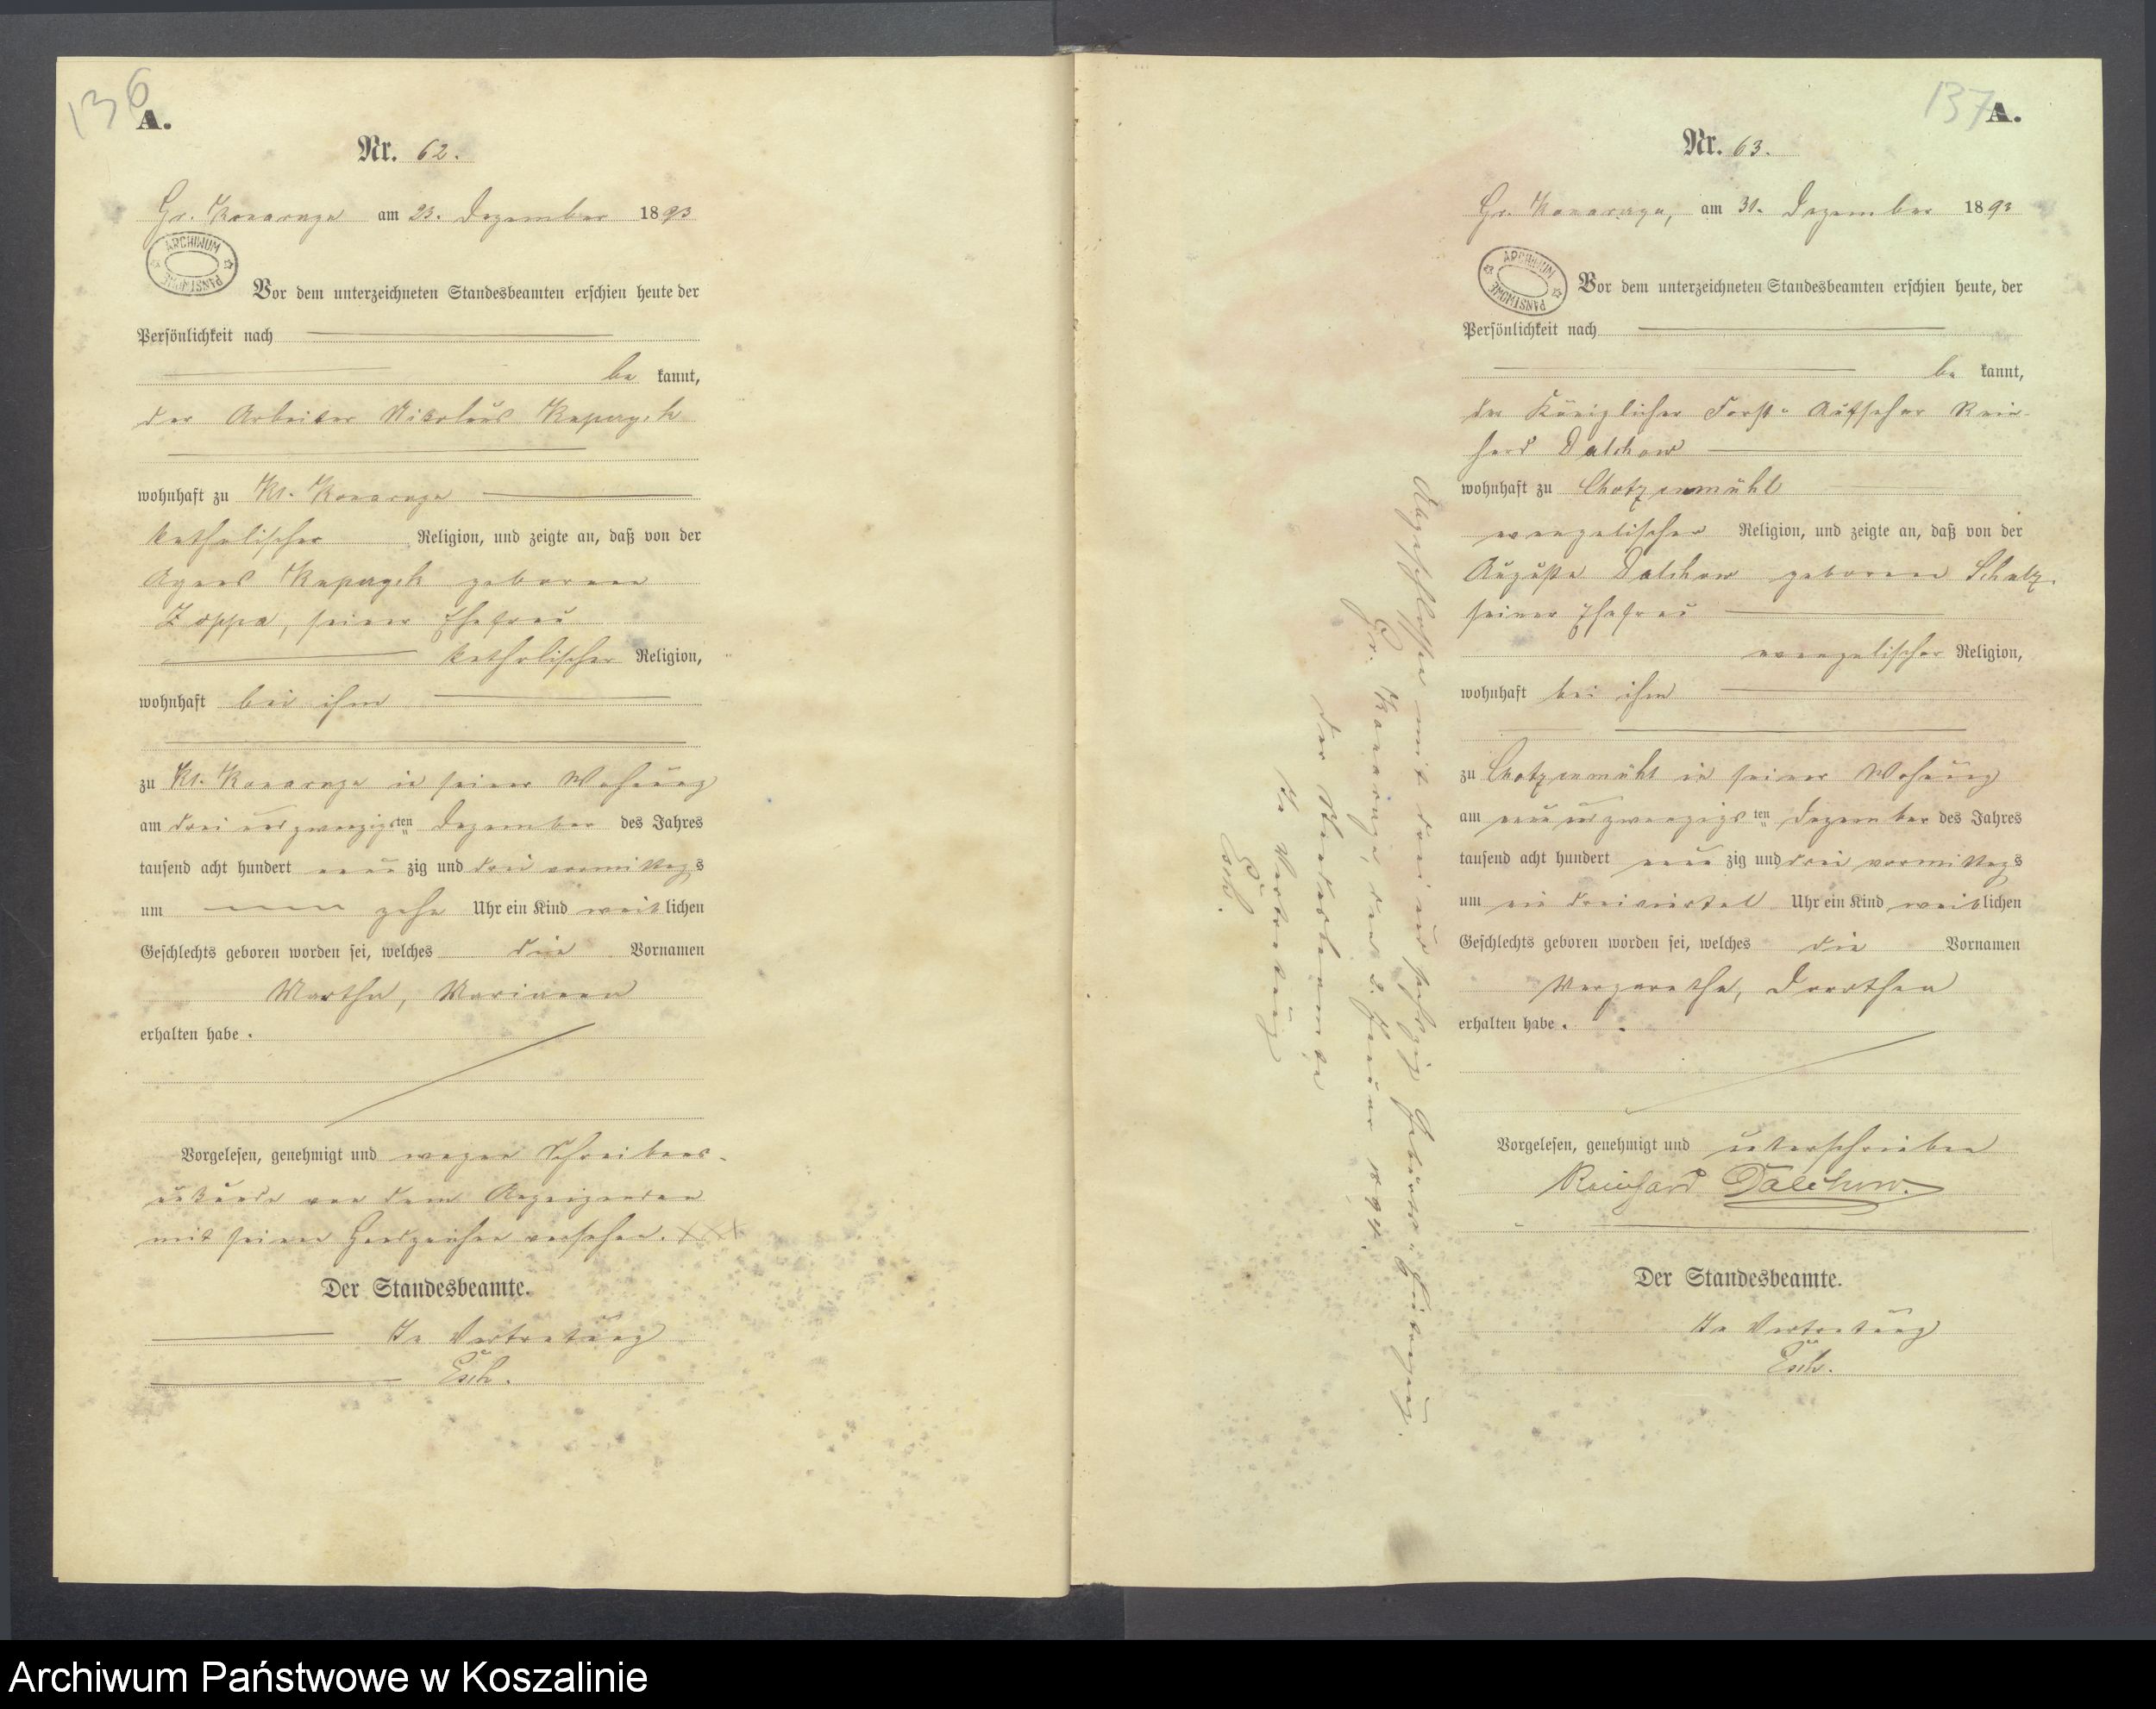 136
A.
Nr. 62.
Gr. Konarzyn am 23. Dezember 1893
ARCHIWUM PAŃSTWOWE
Vor dem unterzeichneten Standesbeamten erschien heute der
Persönlichkeit nach
be kannt,
der Arbeiter Nikolaus
wohnhaft zu Kl. Konarzyn
katholischer Religion, und zeigte an, daß von der
Agnes geborene
Zoppa, seiner Ehefrau
katholischer Religion,
wohnhaft bei ihm
zu Kl. Konarzyn in seiner Wohnung
am drei und zwanzigsten Dezember des Jahres
tausend acht hundert neun zig und drei vormittags
um zehn Uhr ein Kind weiblichen
Geschlechts geboren worden sei, welches die Vornamen
Martha, Marianna
erhalten habe.
Vorgelesen, genehmigt und wegen Schreibens-
unkunde von dem Anzeigenden
mit seinen Handzeichen versehen. XXX
Der Standesbeamte.
In Vertretung
Esch.
137
A.
Nr. 63.
Gr. Konarzyn, am 31. Dezember 1893
ARCHIWUM PAŃSTWOWE
Vor dem unterzeichneten Standesbeamten erschien heute, der
Persönlichkeit nach
be kannt,
der Königlicher Forst-Aufseher Rein-
hard Dalchow
wohnhaft zu Chotzenmühl
evangelischer Religion, und zeigte an, daß von der
Auguste Dalchow geborene Schulz.
seiner Ehefrau
evangelischer Religion,
wohnhaft bei ihm
zu Chotzenmühl in seiner Wohnung
am neun und zwanzigsten Dezember des Jahres
tausend acht hundert neun zig und drei vormittags
um ein dreiviertel Uhr ein Kind weiblichen
Geschlechts geboren worden sei, welches die Vornamen
Margaretha, Dorothea
erhalten habe.
Vorgelesen, genehmigt und unterschrieben
Reinhard Dalchow.
Der Standesbeamte.
In Vertretung
Esch.
Abgeschlossen mit drei und sechzig Geburts-Eintragung.
Gr. Konarzyn, den 2. Januar 1894.
Der Standesbeamte
In Vertretung
Esch.
Archiwum Państwowe w Koszalinie